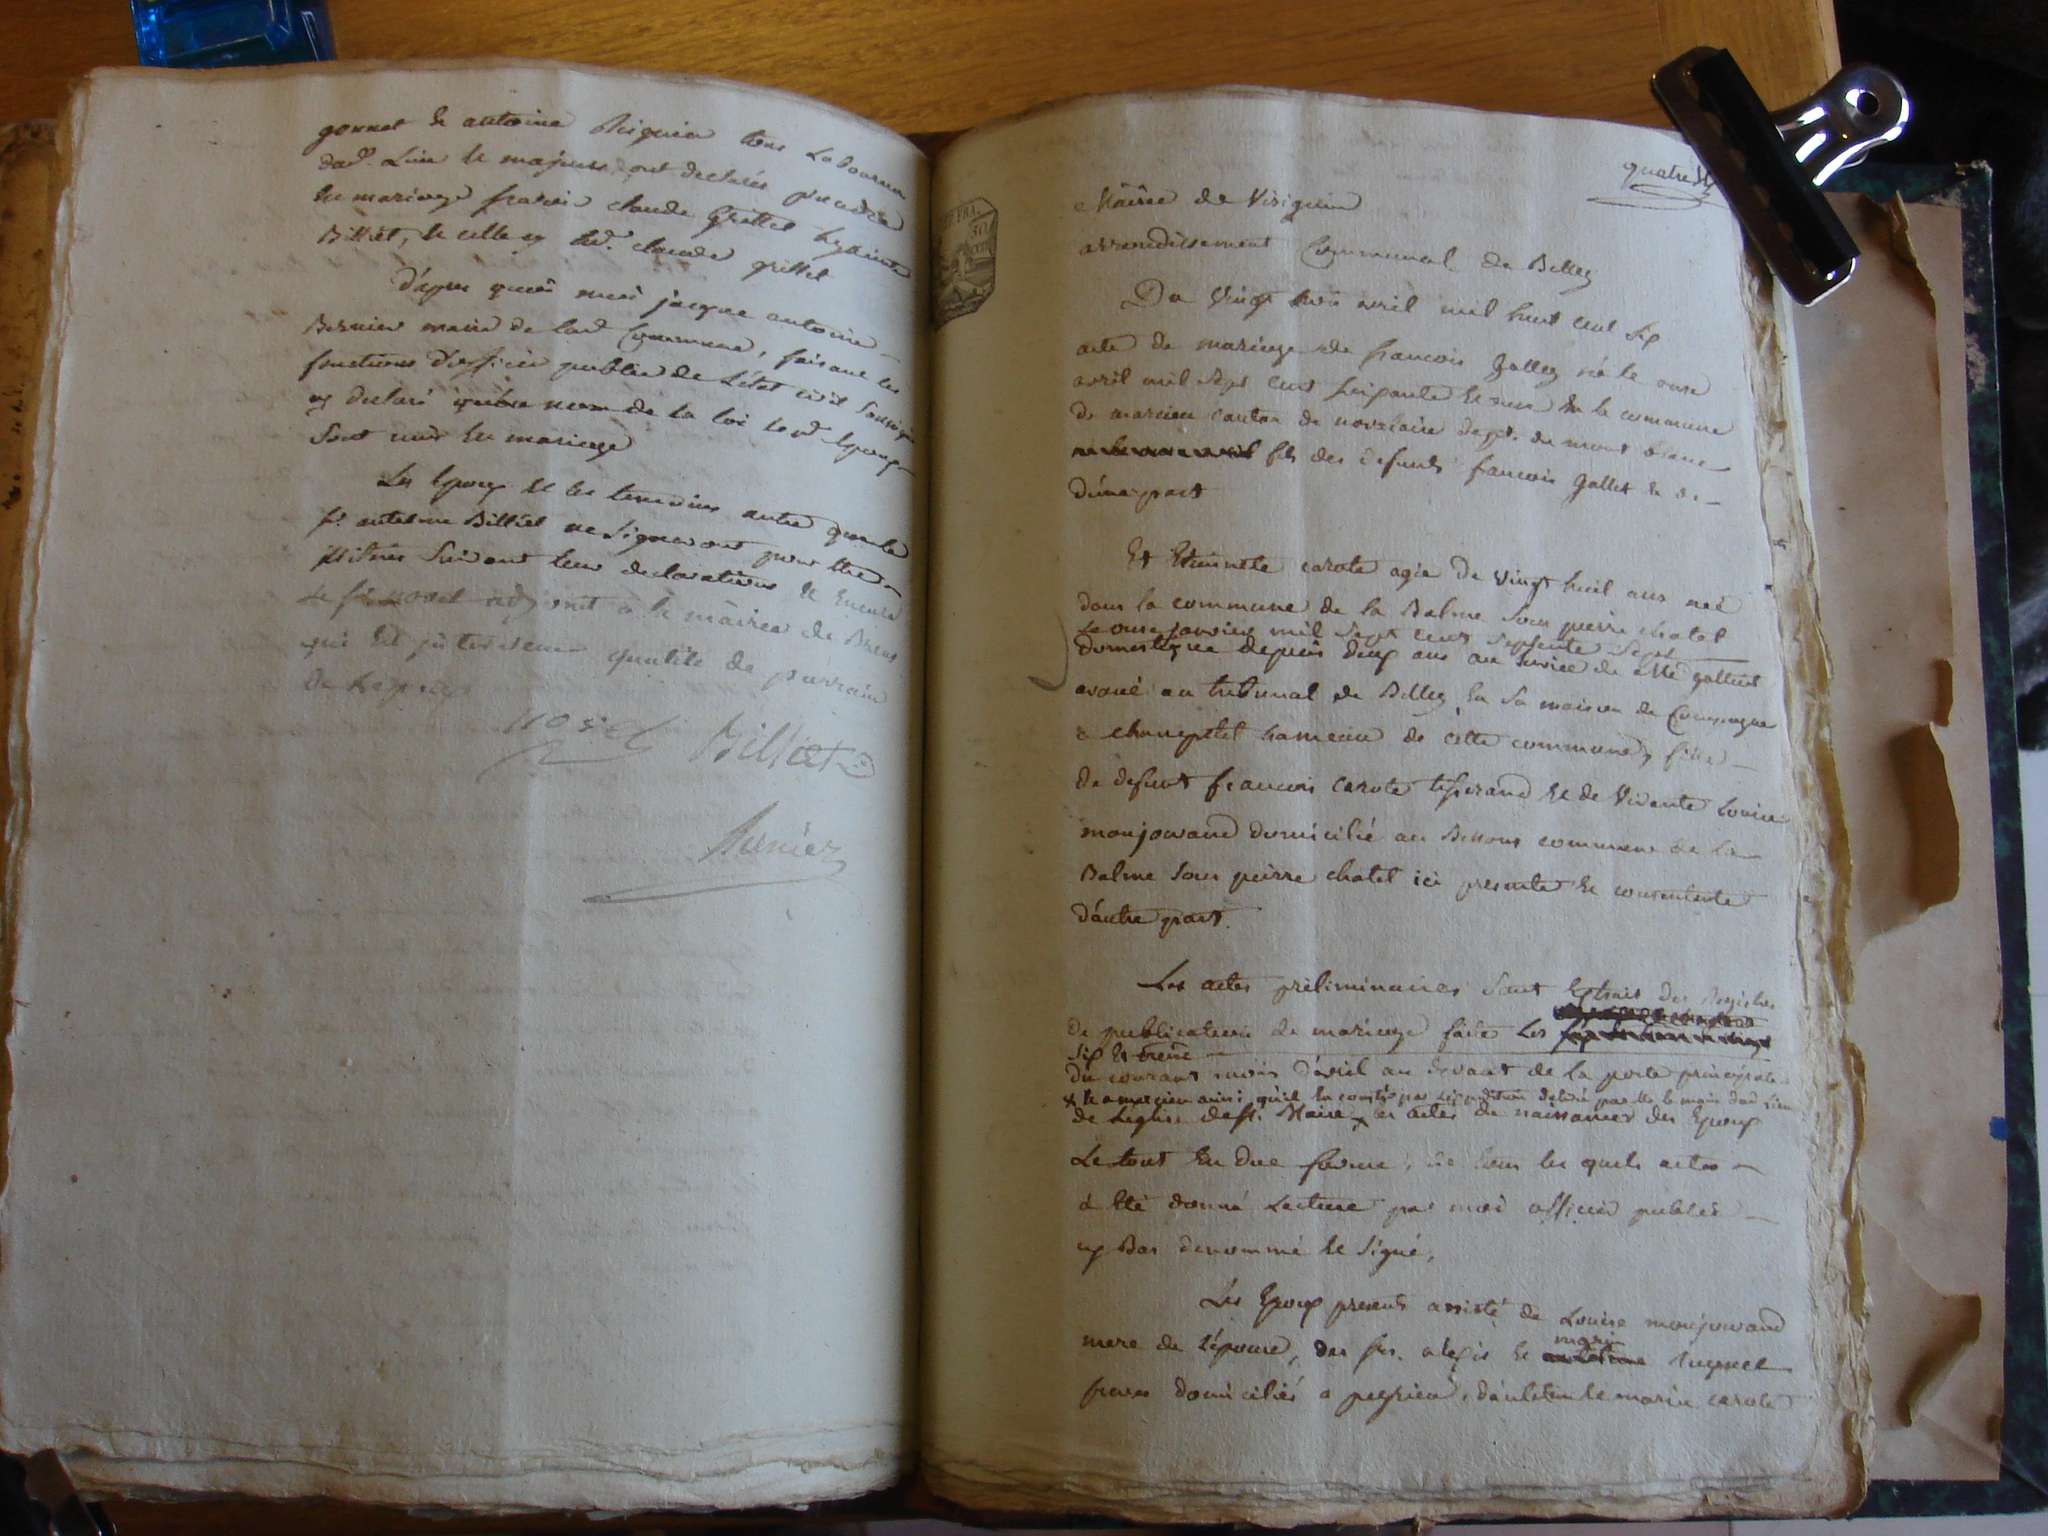 gonnet & antoine tous Laboureurs
dud. Lieu & majeurs, ont declarés prendre
en mariage claude Grillet hyacinte
Billiet, & celle cy led. claude grillet
D'après quoi moi jacque antoine
Bernier maire de lad. Commune, faisant les
fonctions d'officier public de L'état civil Soussigné
ay declaré qu'au nom de la loi lesd. Epoux
Sont unis en mariage
Les Epoux & les temoins autre que le
sr. antelme Billiet ne Signeront pour être
illitrés Suivant leur declarations &
Le sr. nosel adjoint à la mairie de Brens
qui est en qualité de parrain
nosel Billiet
Bernier
quatre
Mairie de Virignin
arrondissement Communal de Belley
Du Vingt trois avril mil huit cent Six
acte de mariage de francois Gallet né le onze
avril mil Sept cent soixante & onze en la commune
de marcieu canton de novalaise dept. du mont blanc
fils des defunts francois Gallet & de
d'une part
Et Etiennete carote agée de Vingt huit ans née
dans la commune de la Balme Sous pierre chatel
Le onze janvier mil Sept cent Septente Sept
domestique depuis deux ans au service de Me gallet
avoué au tribunal de Belley, En Sa maison de Campagne
a champtel hameau de cette commune, fille
de defunt francois carote tisserand & de Vivante Louise
monjouvand domicilié au Bessons commune de la
Balme Sous pierre chatel ici presente & consentente
d'autre part.
Les actes préliminaires Sont Extrait des Registres
de publications de mariage faite les
Six & treize
du courant mois d'avril au devant de la porte principale
& a marcieu ainsi qu'il En conste par Expedition delivré par Mr le maire dud Lieu
de Leglise & Maire, x les actes de naissances des Epoux
Le tout En due forme, de tous les quels actes
a été donné Lecture par moi officier public
cy Bas denommé & Signé,
Les Epoux presents assisté de Louise monjouvand
mere de L'épouse, des srs. alexis & marin
freres domiciliés a peyrieu, d'antelme & marin carote